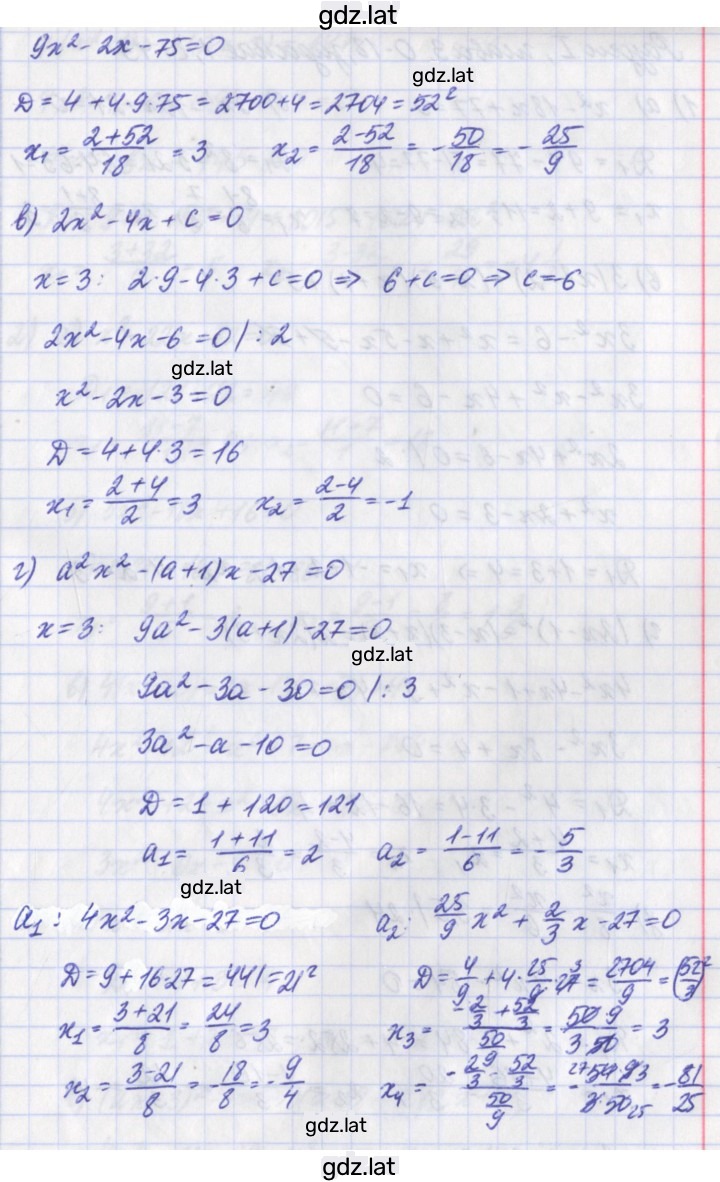 gdz.lat
9x² - 2x - 75 = 0
gdz.lat
D = 4 + 4·9·75 = 2700 + 4 = 2704 = 52²
x₁ = (2+52)/18 = 3 x₂ = (2-52)/18 = -50/18 = -25/9
в) 2x² - 4x + c = 0
x = 3: 2·9 - 4·3 + c = 0 ⇒ 6 + c = 0 ⇒ c = -6
2x² - 4x - 6 = 0 | : 2
gdz.lat
x² - 2x - 3 = 0
D = 4 + 4·3 = 16
x₁ = (2+4)/2 = 3 x₂ = (2-4)/2 = -1
г) a²x² - (a+1)x - 27 = 0
x = 3: 9a² - 3(a+1) - 27 = 0
gdz.lat
9a² - 3a - 30 = 0 | : 3
3a² - a - 10 = 0
D = 1 + 120 = 121
a₁ = (1+11)/6 = 2 a₂ = (1-11)/6 = -5/3
gdz.lat
a₁: 4x² - 3x - 27 = 0 a₂: 25/9 x² + 2/3 x - 27 = 0
D = 9 + 16·27 = 441 = 21² D = 4/9 + 4·25/9·27 3 = 2704/9 = (52/3)²
x₁ = (3+21)/8 = 24/8 = 3 x₃ = (-2/3 + 52/3)/(50/9) = 50·9/(3·50) = 3
x₂ = (3-21)/8 = -18/8 = -9/4 x₄ = (-2/3 - 52/3)/(50/9) = = -81/25
gdz.lat
gdz.lat